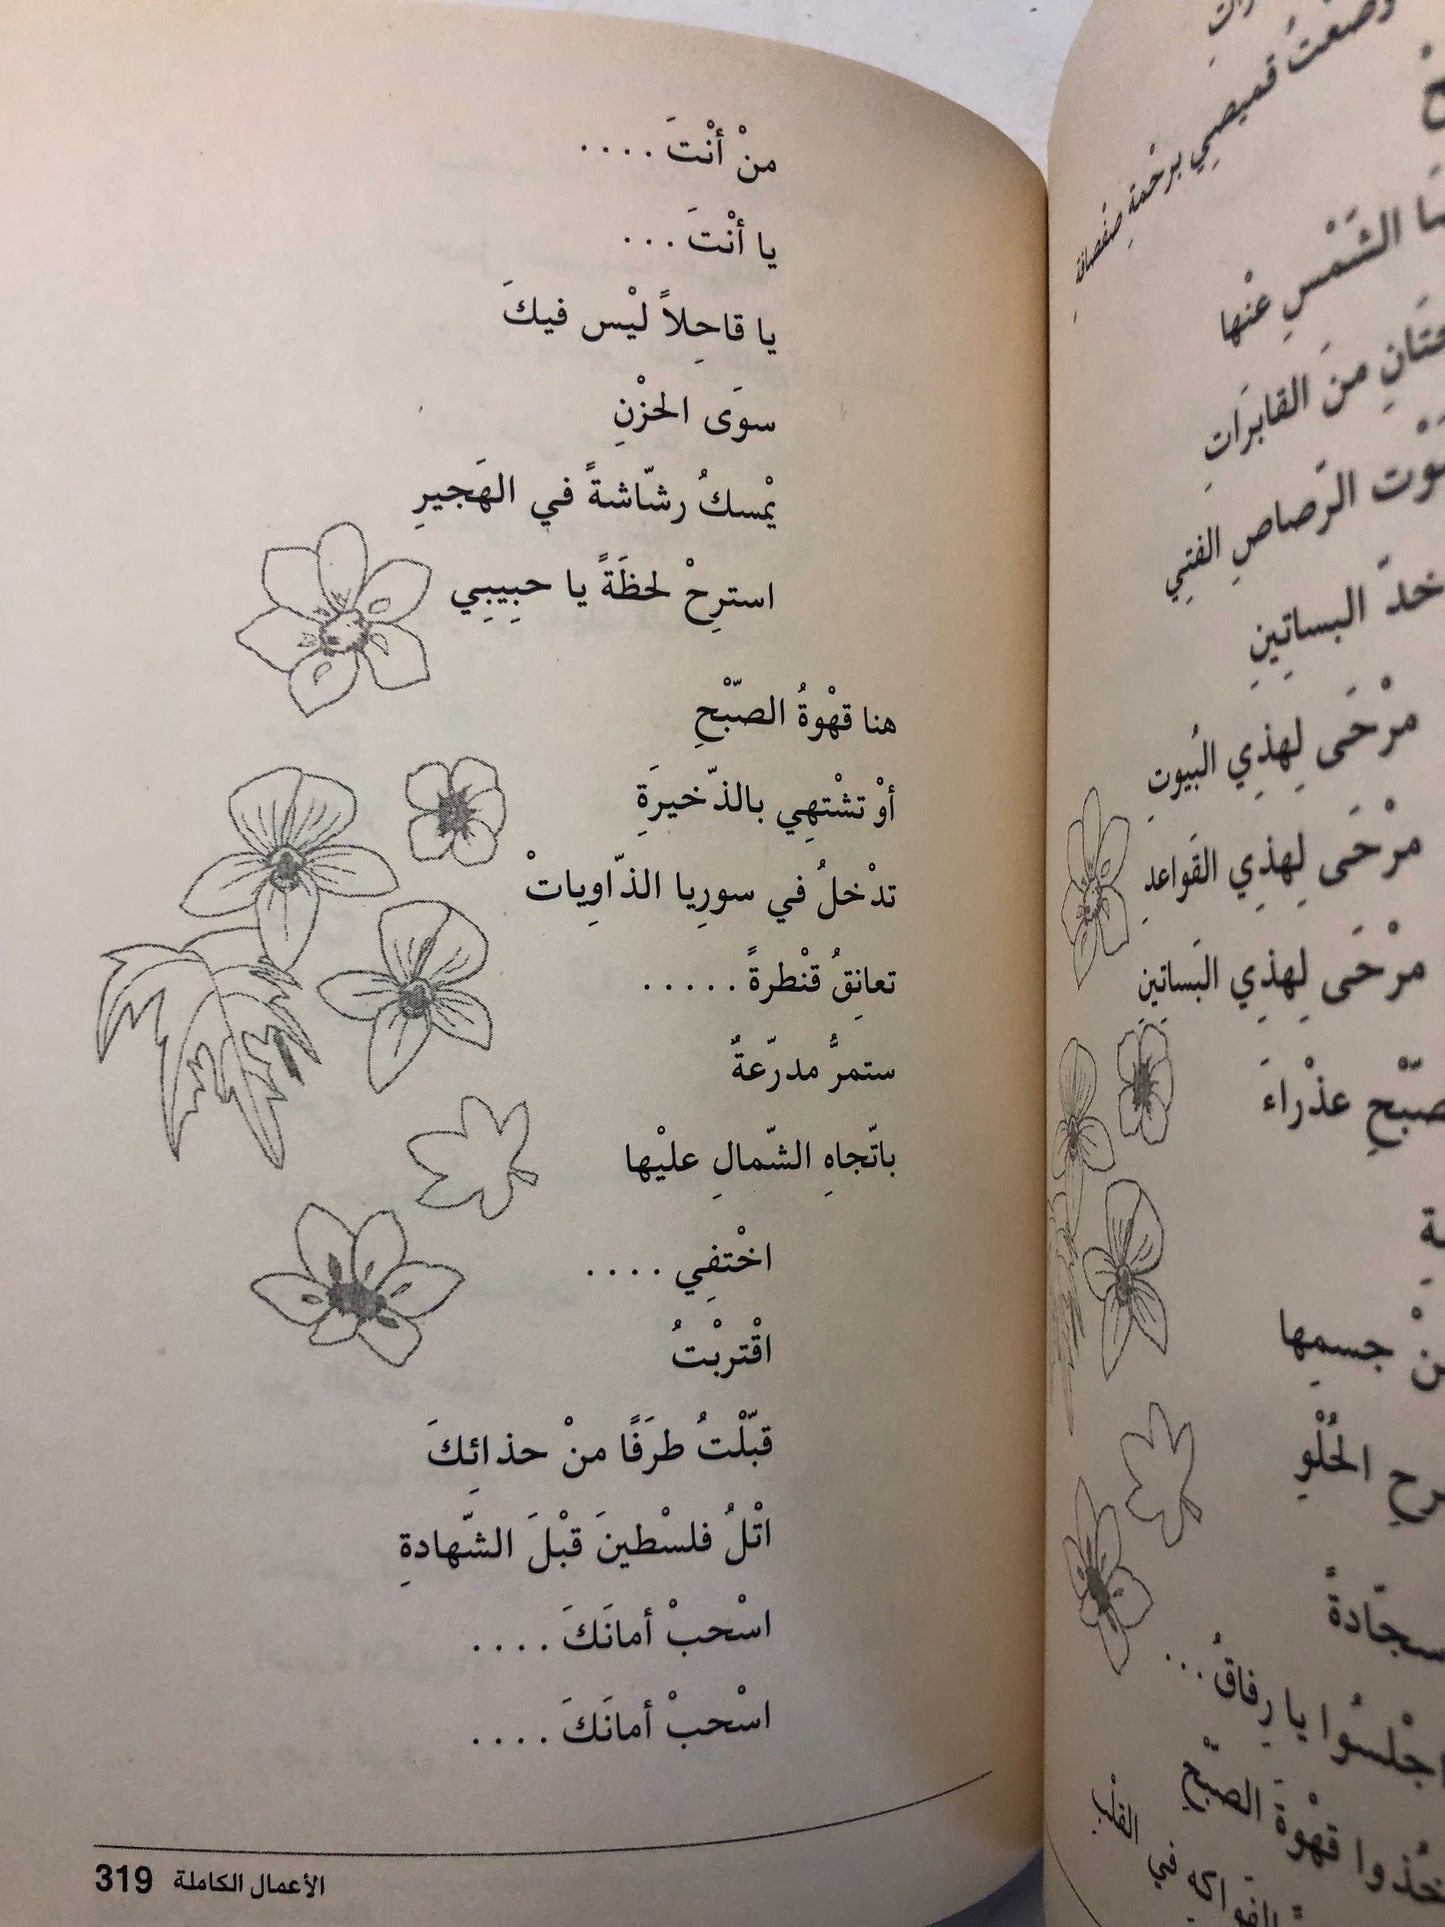 منْ أنْتَ ....
يا أنْتَ ...
يا قاحِلاً ليْس فيكَ
سوَى الحزْنِ
يمْسكُ رشّاشةً في الهَجيرِ
استرِحْ لحظَةً يا حبِيبِي
هنا قهْوةُ الصّبْحِ
أوْ تشْتهِي بالذّخيرَةِ
تدْخلُ في سورِيا الذّاوِياتْ
تعانِقُ قنْطرةً .....
ستمرُّ مدرّعةٌ
باتّجاهِ الشّمالِ عليْها
اخْتفِي ....
اقْتربْتُ
قبّلْتُ طرَفًا منْ حذائِكَ
اتْلُ فلسْطينَ قبْلَ الشّهادةِ
اسْحبْ أمانَكَ ....
اسْحبْ أمانَكَ ....
الأعمال الكاملة 319
وضعتُ قميصِي برحْمةِ صفْصافة
الشَمْسِ عنْها
منَ القابرَاتِ
الرَصاصِ الفتِي
خدّ البساتِينِ
مرْحَى لِهذِي البُيوتِ
مرْحَى لِهذِي القَواعدِ
مرْحَى لِهذِي البَساتِينِ
عذْراءَ
جسمِها
الحُلْوِ
سجّادةً
اجْلسُوا يا رِفاقُ ...
قهْوةَ الصبْحِ
في القلْبِ